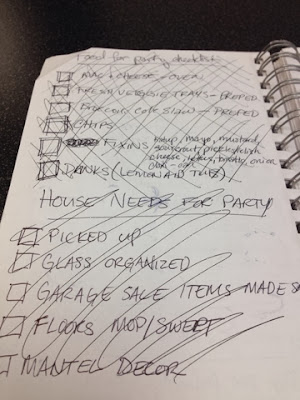 Food for party checklist
MAC & CHEESE - OVEN
FRESH VEGGIE TRAYS - PREPED
COLE SLAW - PREPED
CHIPS
FIXINS ketchup, mayo, mustard,
pickle relish
cheese, tomato, onion
DRINKS (LEMONAID
HOUSE NEEDS FOR PARTY
PICKED UP
GLASS ORGANIZED
GARAGE SALE ITEMS MADE S
FLOORS MOP/SWEPT
MANTEL DECOR